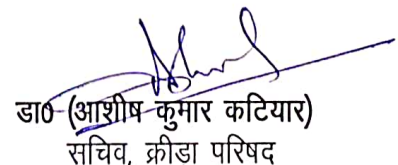 डा० (आशीष कुमार कटियार)
सचिव, क्रीडा परिषद